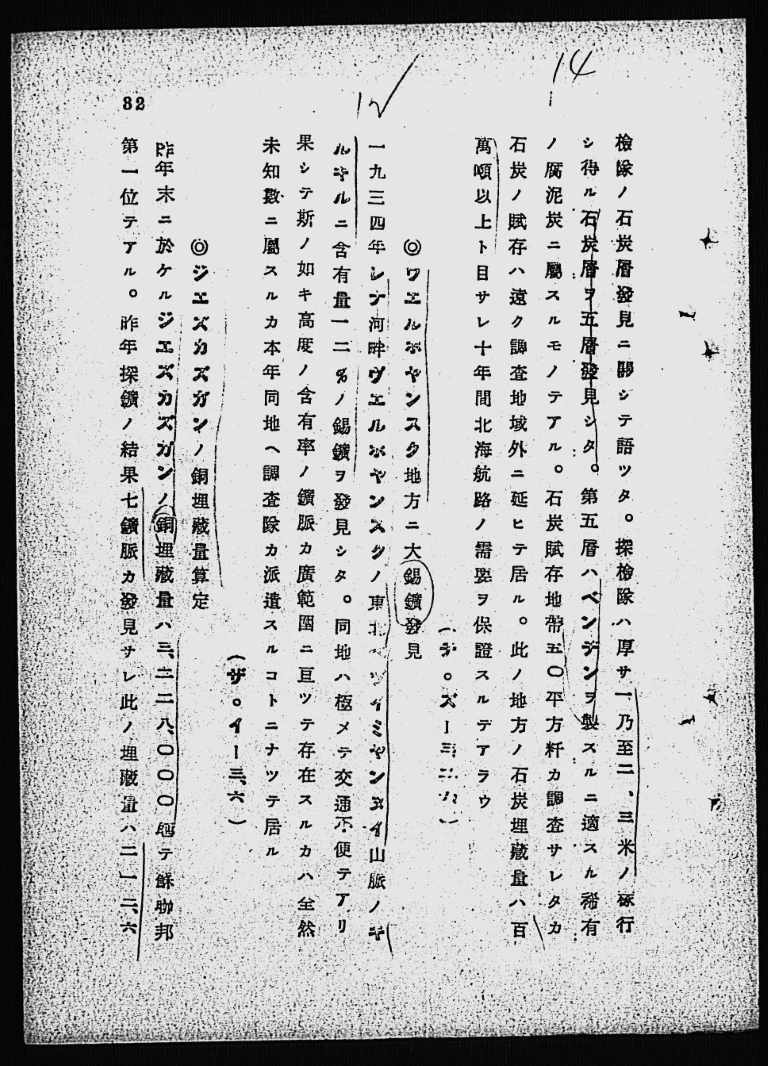 14
12
檢隊ノ石炭層發見ニ關シテ語ツタ。探檢隊ハ厚サ一乃至二、三米ノ稼行
シ得ル石炭層ヲ五層發見シタ。第五層ハベンヂンヲ製スルニ適スル稀有
ノ腐泥炭ニ屬スルモノテアル。石炭賦存地帶五〇平方粁カ調査サレタカ
石炭ノ賦存ハ遠ク調査地域外ニ延ヒテ居ル。此ノ地方ノ石炭埋藏量ハ百
萬噸以上ト目サレ十年間北海航路ノ需要ヲ保證スルデアラウ
◎ワエルホヤンスク地方ニ大錫鑛發見
一九三四年レナ河畔ヴエルホヤンスクノ東北 イミヤンヌイ山脈ノキ
ルキルニ含有量一二%ノ錫鑛ヲ發見シタ。同地ハ極メテ交通不便テアリ
果シテ斯ノ如キ高度ノ含有率ノ鑛脈カ廣範圍ニ亘ツテ存在スルカハ全然
未知數ニ屬スルカ本年同地ヘ調査隊カ派遣スルコトニナツテ居ル
(ザ。イー三、六)
◎ジエズカズガンノ銅埋藏量算定
昨年末ニ於ケルジエズカズガンノ銅埋藏量ハ三、二二八、〇〇〇 テ蘇聯邦
第一位テアル。昨年探鑛ノ結果七鑛脈カ發見サレ此ノ埋藏量ハ二一二、六
82